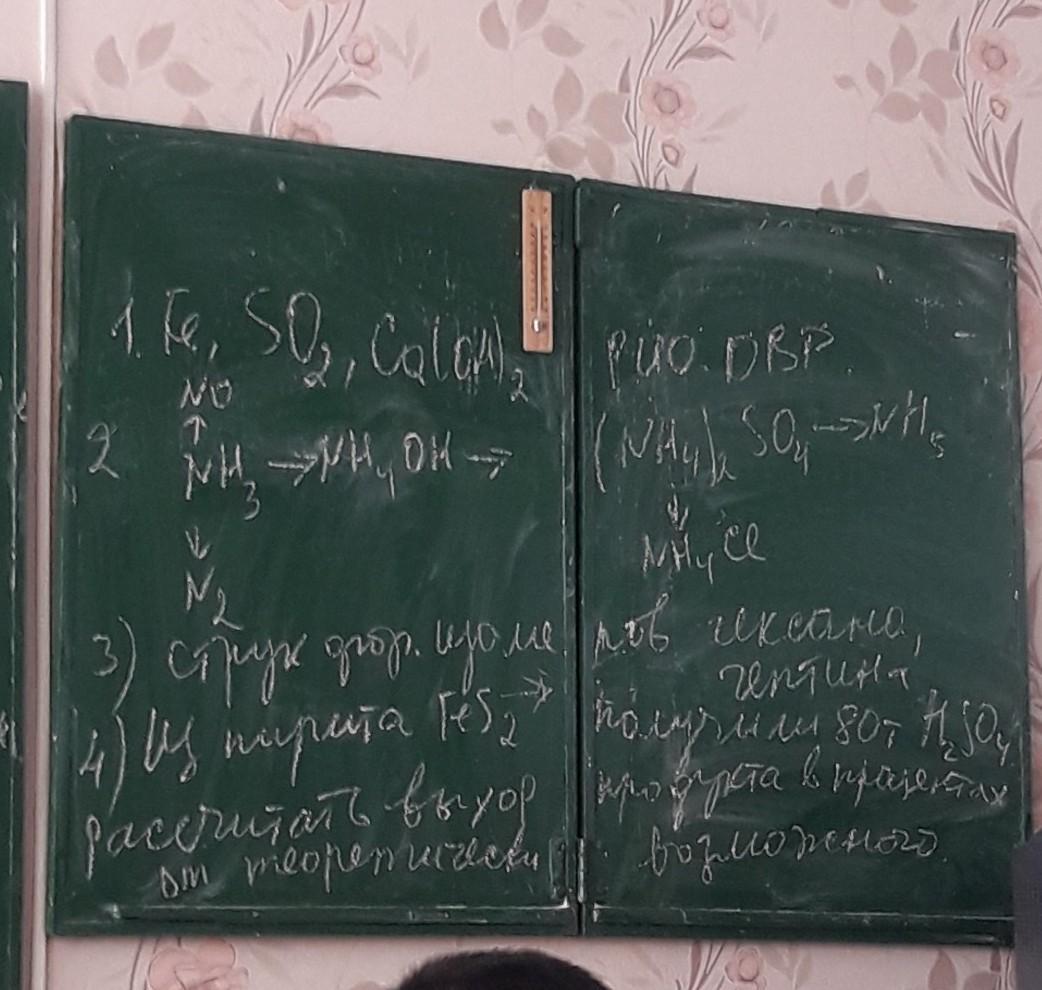 1. Fe, SO2, Ca(OH)2 РИО. ОВР.
NO
↑
2 NH3 → NH4OH → (NH4)2 SO4 → NH3
↓ ↓
NH4Cl
N2
3) струк фор. изоме ров гексана,
гептина
4) Из пирита FeS2 → получили 80т H2SO4
рассчитать выход продукта в процентах
от теоретически возможного.